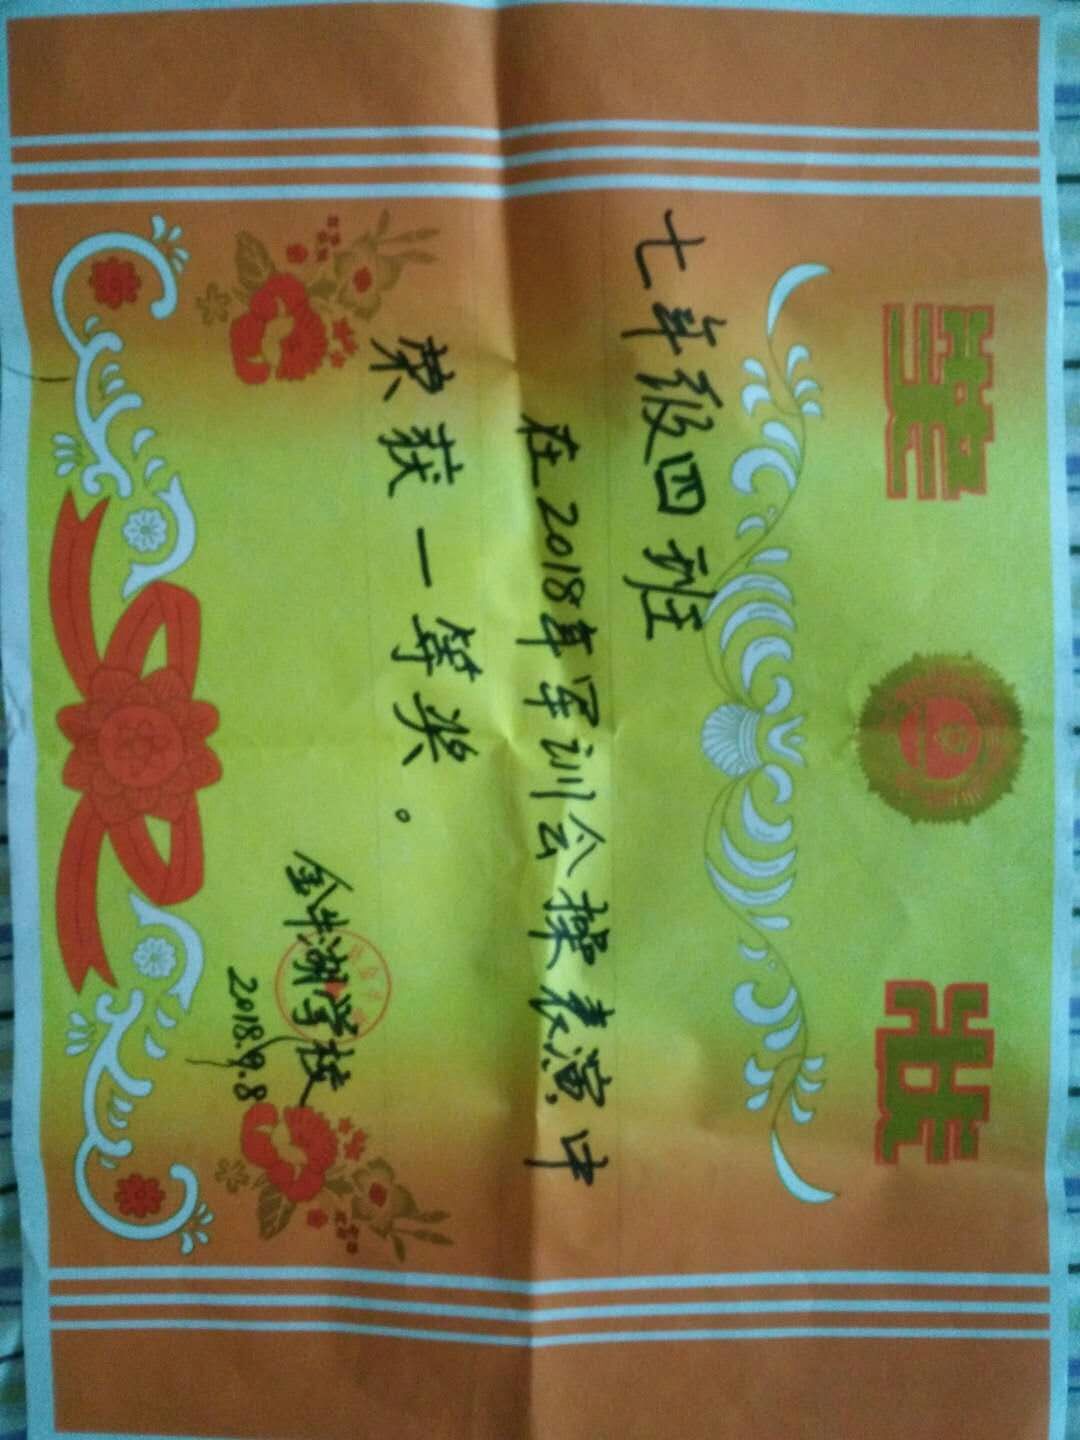 奖 状
七年级四班
在2018年军训会操表演中
荣获一等奖。
金牛湖学校
2018.9.8